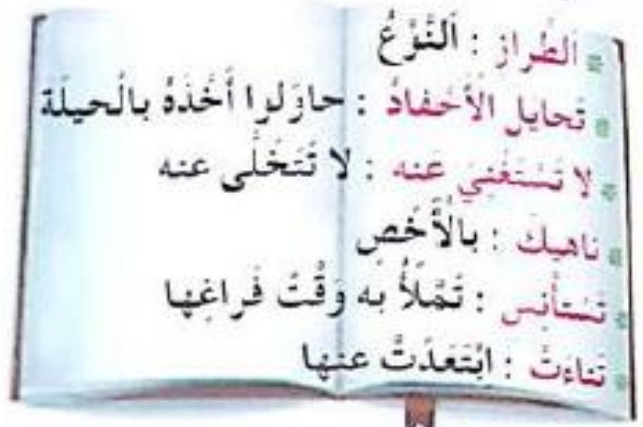 اَلطِّراز : اَلنَّوْعُ
تَحايل الْأَحْفادُ : حاوَلوا أَخْذَهُ بالْحيلَة
لا تَسْتَغْني عَنه : لا تَتَخَلَّى عنه
ناهيكَ : بالْأَخَصِّ
تَسْتأنِس : تَمْلَأُ به وَقْتَ فَراغِها
تناءَتْ : ابْتَعَدَتْ عنها